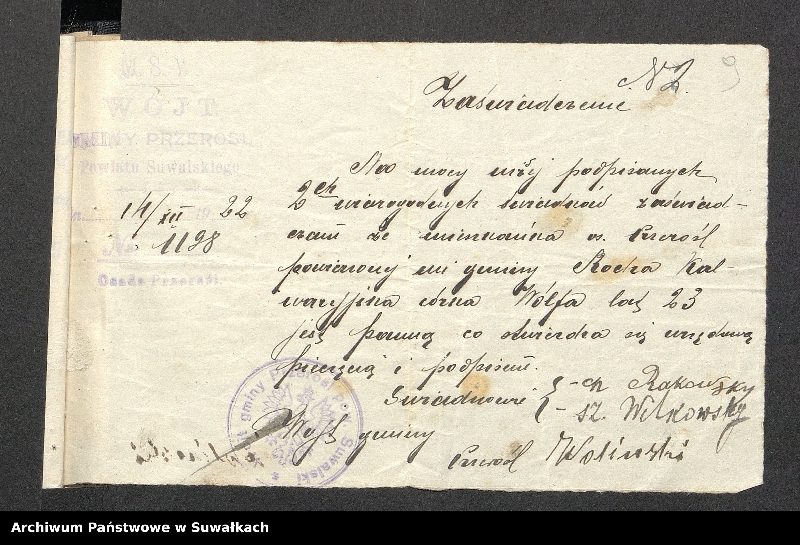 R. P.
WÓJT
GMINY PRZEROŚL
Powiatu Suwalskiego
14/XII 1922
№ 1198
Osada Przerośl
N 2.
9
Zaświadczenie
Na mocy niżej podpisanych
2ch wiarogodnych świadków zaświad-
czam że mieszkanka os. Przerośl
powierzonej mi gminy Rocha Kal-
waryjska córka Wolfa lat 23
jest panną co stwierdza się urzędową
pieczęcią i podpisem.
Świadkowie { - ch Rakowsky
- sz. Wilkowsky
Wójt gminy
Przerośl Woliński
gminy Przerośl Pow. Suwalski
Archiwum Państwowe w Suwałkach